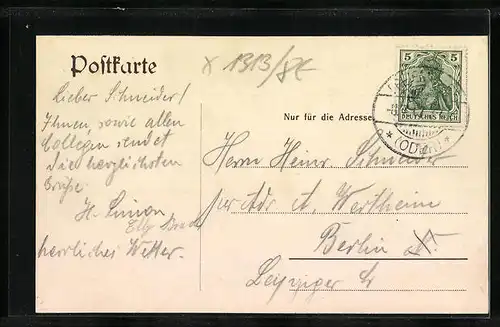 x 1313/8E
5 5
DEUTSCHES REICH
Postkarte
Nur für die Adresse.
Lieber Schneider!
Ihnen, sowie allen
Collegen sendet
die herzlichsten
Grüße
H. Simon
herrliches Wetter.
Herrn Heinr. Schneider
per Adr A. Wertheim
Berlin W.
Leipziger Str